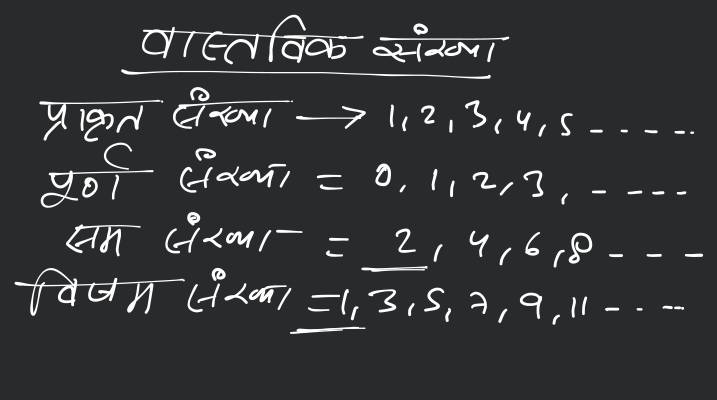 वास्तविक संख्या
प्राकृत संख्या → 1, 2, 3, 4, 5 - - - - -
पूर्ण संख्या = 0, 1, 2, 3, - - - -
सम संख्या = 2, 4, 6, 8 - - - -
विषम संख्या = 1, 3, 5, 7, 9, 11 - - - -